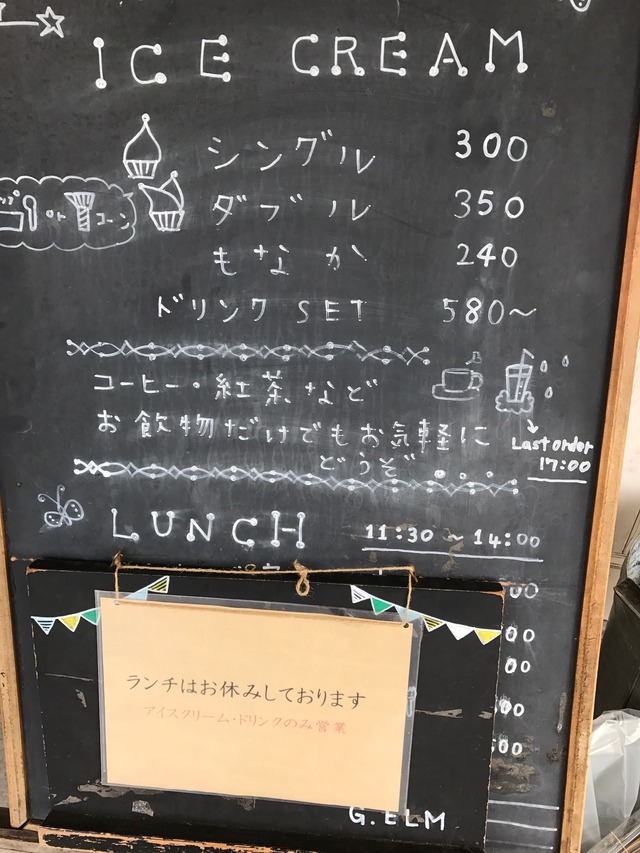 ICE CREAM
シングル 300
ダブル 350
or コーン
もなか 240
ドリンク SET 580～
コーヒー・紅茶など
お飲物だけでもお気軽に
どうぞ
Last order
17:00
LUNCH 11:30 ～ 14:00
00
00
00
00
500
ランチはお休みしております
アイスクリーム・ドリンクのみ営業
G. ELM